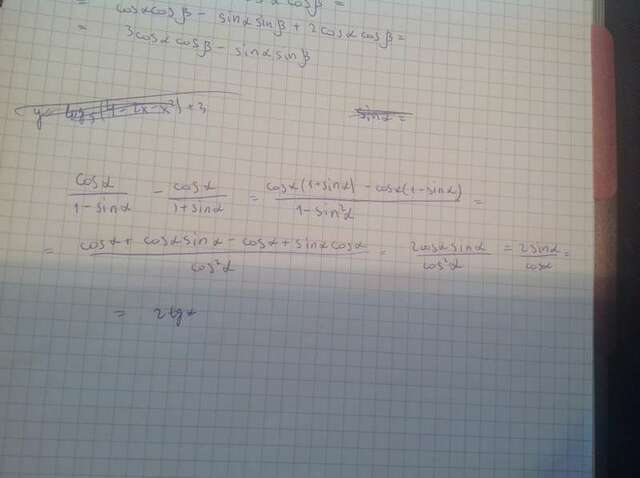 = cosαcosβ - sinαsinβ + 2cosαcosβ =
= 3cosαcosβ - sinαsinβ
sinα =
cosα/(1-sinα) - cosα/(1+sinα) = (cosα(1+sinα) - cosα(1-sinα))/(1-sin²α) =
= (cosα + cosαsinα - cosα + sinαcosα)/cos²α = 2cosαsinα/cos²α = 2sinα/cosα =
= 2tgα